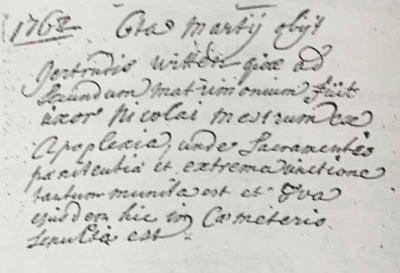 1768 8tas martij obijt
Jertrudis witten quæ ad
secundum matrimonium fuit
uxor Nicolai mestrum ex
apoplexia, unde sacramentis
pænitentia et extrema unctione
tantum munita est et 8va
ejusdem hic in Cæmeterio
sepulta est